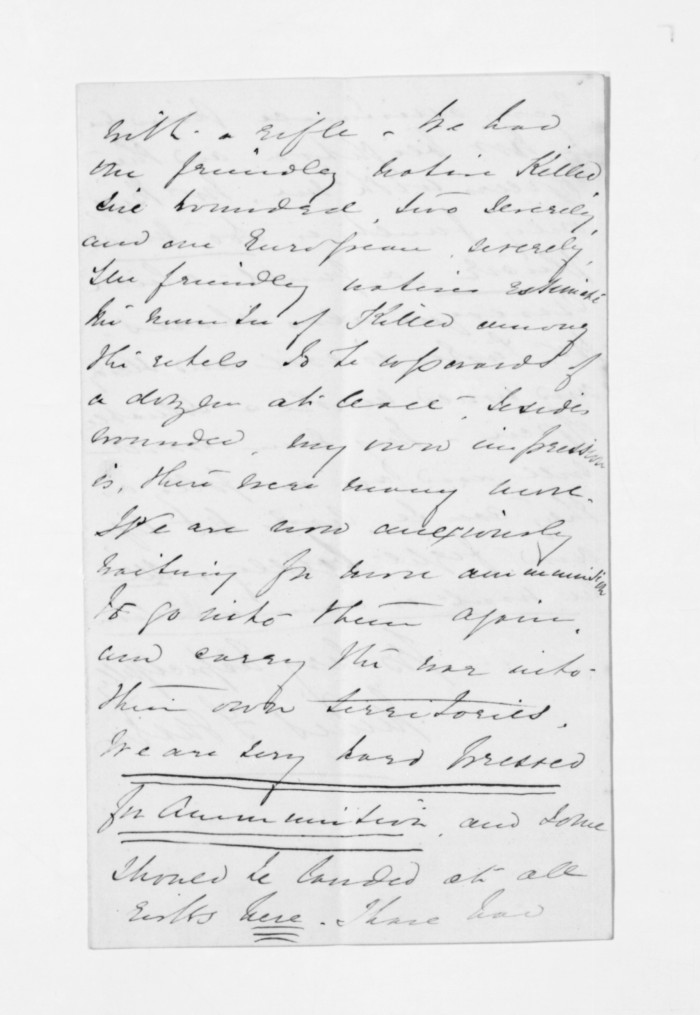 with a rifle. We had
one friendly native Killed
five wounded, two severely,
and one European severely,
The friendly natives estimate
the number of Killed among
the rebels to be upwards of
a dozen at least, besides
wounded, my own impression
is, there were many more.
We are now anxiously
waiting for more ammunition
to go into them again,
and carry the war into
their own territories.
We are very hard pressed
for Ammunition, and some
should be landed at all
risks here. I have had